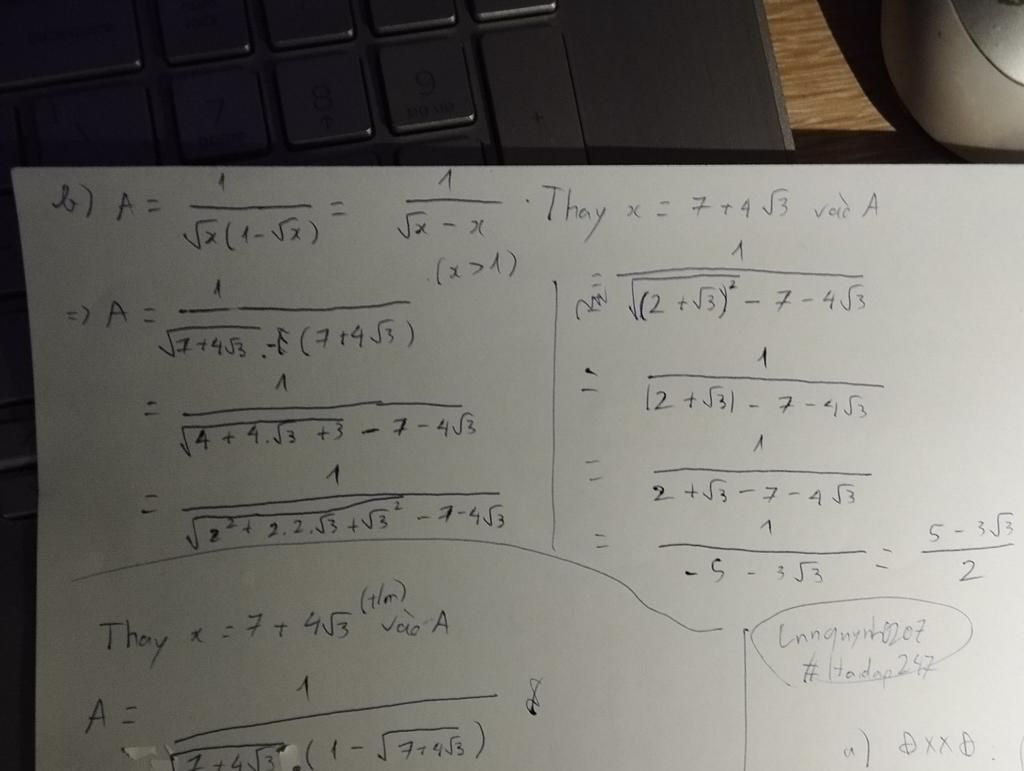 7
8
9
+
b) A = 1/(√x(1-√x)) = 1/(√x - x) . Thay x = 7 + 4√3 vào A
(x > 1)
=> A = 1/(√(7+4√3) - (7+4√3))
= 1/(√(4 + 4.√3 + 3) - 7 - 4√3)
= 1/(√(2² + 2.2.√3 + √3²) - 7 - 4√3)
= 1/(√((2 + √3)²) - 7 - 4√3)
= 1/(|2 + √3| - 7 - 4√3)
= 1/(2 + √3 - 7 - 4√3)
= 1/(-5 - 3√3) = (5 - 3√3)/2
Thay x = 7 + 4√3 (t/m) vào A
A = 1/(√(7+4√3).(1 - √(7+4√3)))
#Hoidap247
a) ĐKXĐ: